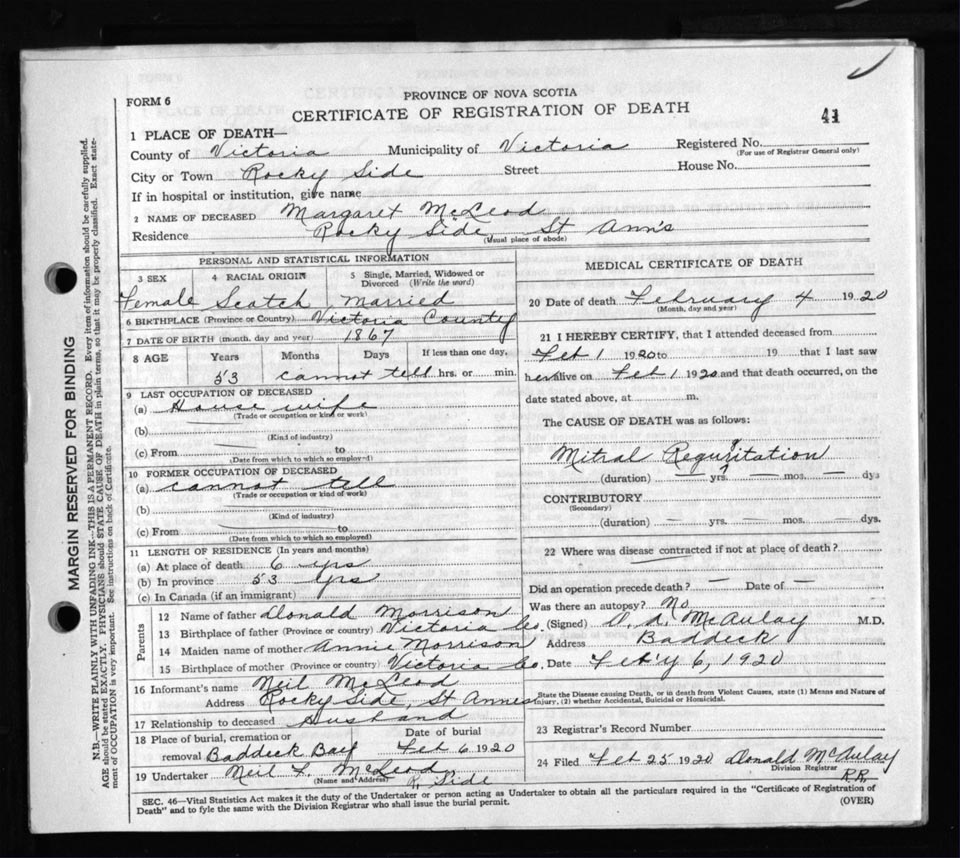 PROVINCE OF NOVA SCOTIA
FORM 6
CERTIFICATE OF REGISTRATION OF DEATH
41
1 PLACE OF DEATH—
County of Victoria Municipality of Victoria Registered No.
(For use of Registrar General only)
City or Town Rocky Side Street House No.
If in hospital or institution, give name
2 NAME OF DECEASED Margaret McLeod
Residence Rocky Side St Ann's
(Usual place of abode)
PERSONAL AND STATISTICAL INFORMATION
3 SEX 4 RACIAL ORIGIN 5 Single, Married, Widowed or Divorced (Write the word)
Female Scotch Married
6 BIRTHPLACE (Province or Country) Victoria County
7 DATE OF BIRTH (month, day and year) 1867
8 AGE Years Months Days If less than one day,
53 cannot tell hrs. or min.
9 LAST OCCUPATION OF DECEASED
(a) House wife
(Trade or occupation or kind or work)
(b)
(Kind of industry)
(c) From to
(Date from which to which so employed)
10 FORMER OCCUPATION OF DECEASED
(a) cannot tell
(Trade or occupation or kind of work)
(b)
(Kind of industry)
(c) From to
(Date from which to which so employed)
11 LENGTH OF RESIDENCE (In years and months)
(a) At place of death 6 yrs
(b) In province 53 yrs
(c) In Canada (if an immigrant)
Parents
12 Name of father Donald Morrison
13 Birthplace of father (Province or country) Victoria Co.
14 Maiden name of mother Annie Morrison
15 Birthplace of mother (Province or country) Victoria Co.
16 Informant's name Neil McLeod
Address Rocky Side, St Annes
17 Relationship to deceased Husband
18 Place of burial, cremation or removal Baddeck Bay Date of burial Feb 6 1920
19 Undertaker Neil F. McLeod
(Name and Address) R. Side
MEDICAL CERTIFICATE OF DEATH
20 Date of death February 4 1920
(Month, day and year)
21 I HEREBY CERTIFY, that I attended deceased from
Feb 1 1920 to 19 that I last saw
her alive on Feb 1 1920 and that death occurred, on the
date stated above, at m.
The CAUSE OF DEATH was as follows:
Mitral Regurgitation
(duration) — yrs. — mos. — dys
CONTRIBUTORY
(Secondary)
(duration) — yrs. — mos. — dys.
22 Where was disease contracted if not at place of death?
Did an operation precede death? — Date of —
Was there an autopsy? No
(Signed) McAulay M.D.
Address Baddeck
Date Feb'y 6, 1920
State the Disease causing Death, or in death from Violent Causes, state (1) Means and Nature of
Injury, (2) whether Accidental, Suicidal or Homicidal.
23 Registrar's Record Number
24 Filed Feb 25 1920 Donald McAulay
Division Registrar
R.R.
SEC. 46—Vital Statistics Act makes it the duty of the Undertaker or person acting as Undertaker to obtain all the particulars required in the "Certificate of Registration of
Death" and to fyle the same with the Division Registrar who shall issue the burial permit.
(OVER)
MARGIN RESERVED FOR BINDING
N.B.—WRITE PLAINLY WITH UNFADING INK—THIS IS A PERMANENT RECORD. Every item of information should be carefully supplied.
AGE should be stated EXACTLY. PHYSICIANS should STATE CAUSE OF DEATH in plain terms, so that it may be properly classified. Exact state-
ment of OCCUPATION is very important. See instructions on back of Certificate.